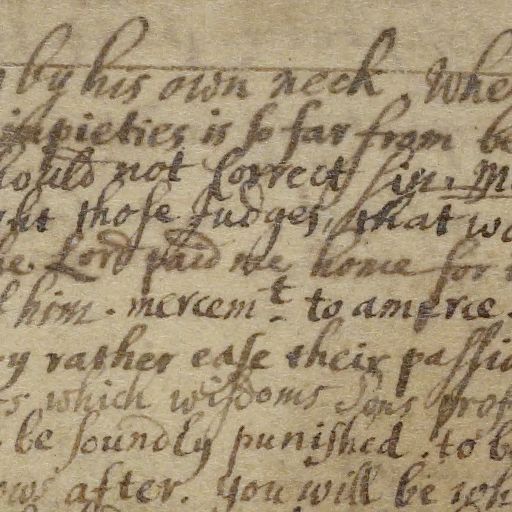 by his own neck when
impieties is so far from be
should not correct sin. M
ght those Judges, that wo
he Lord paid me home for
him. mercemt. to amerce.
y rather ease their passio
s which wisdoms Sons prof
be soundly punished. to be
ows after. you will be wh